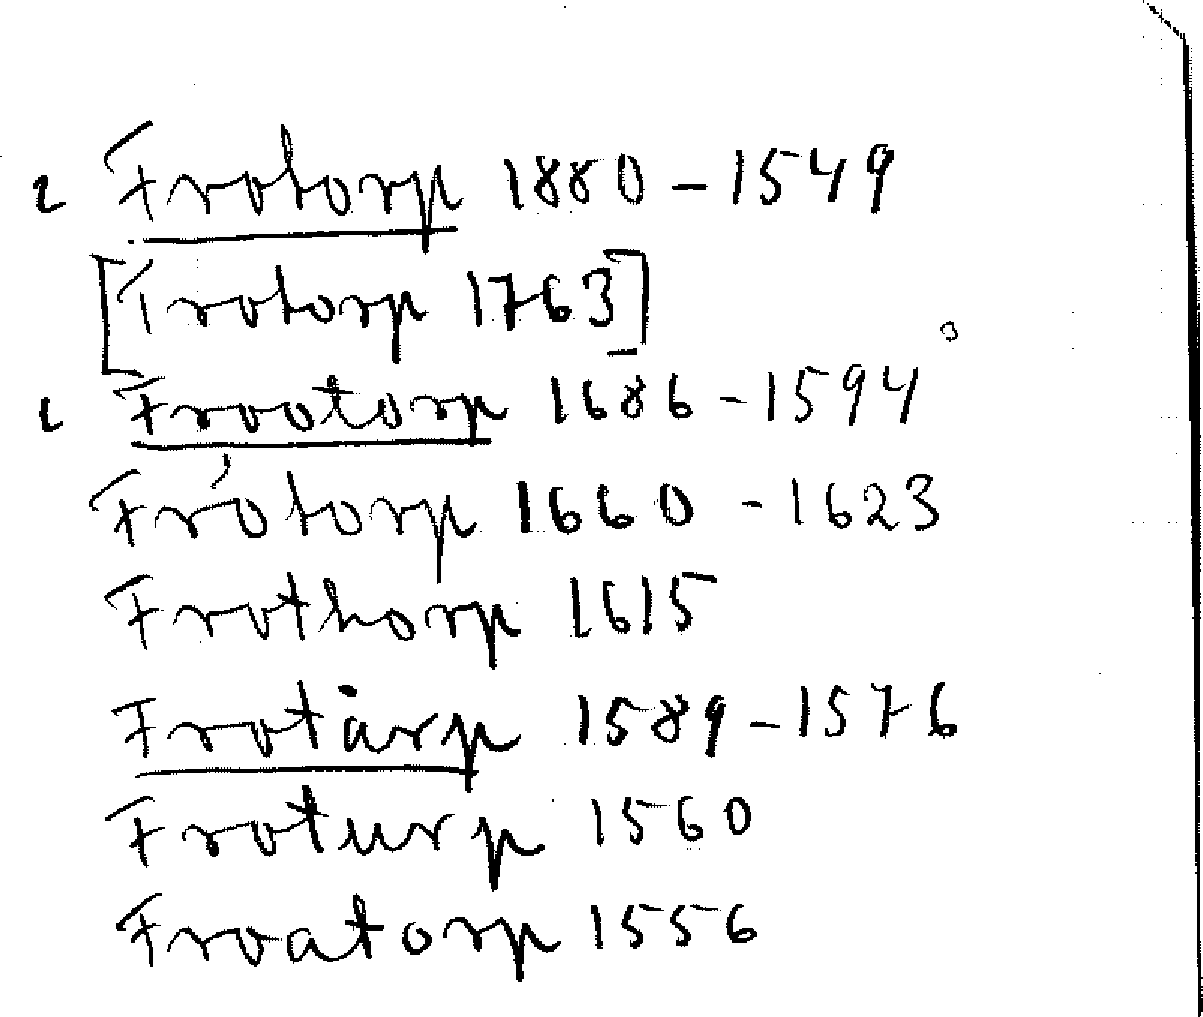 Frotorp 1880-1549
[Trotorp 1763]
Frootorp 1686-1594
Frótorp 1660-1623
Frothorp 1615
Frotårp 1589-1576
Froturp 1560
Froatorp 1556